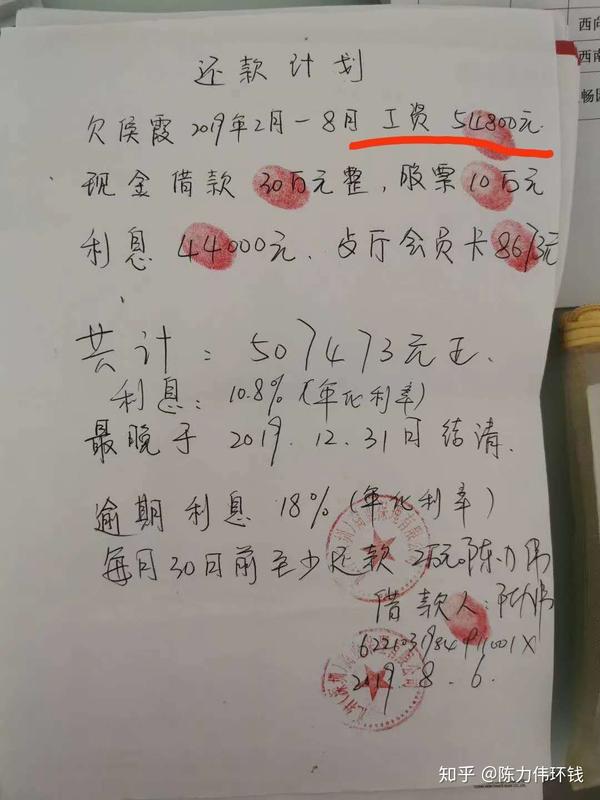 还款计划
欠侯霞2019年2月-8月 工资 54800元.
现金借款 30万元整, 股票10万元
利息 44000元、歺厅会员卡8673元
共计: 507473元正.
利息: 10.8% (年化利率)
最晚于 2019.12.31日结清.
逾期利息 18% (年化利率)
每月30日前至少还款 2万元。陈力伟
借款人: 陈力伟
2019.8.6.
西向
西南
知乎 @陈力伟环钱